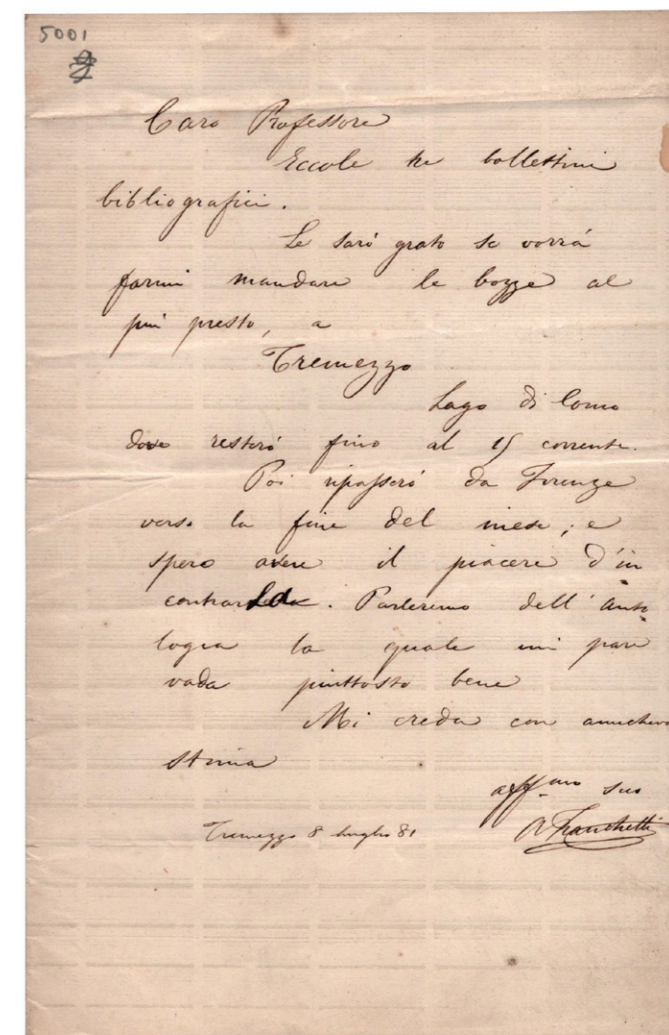 5001
Caro Professore
Eccole tre bollettini
bibliografici.
Le sarò grato se vorrà
farmi mandare le bozze al
più presto, a
Tremezzo
Lago di Como
dove resterò fino al 15 corrente.
Poi ripasserò da Firenze
verso la fine del mese; e
spero avere il piacere d'in
contrar. Parleremo dell'Anto
logia la quale mi pare
vada piuttosto bene
Mi creda con amichev
stima
aff.mo suo
A Franchetti
Tremezzo 8 luglio 81